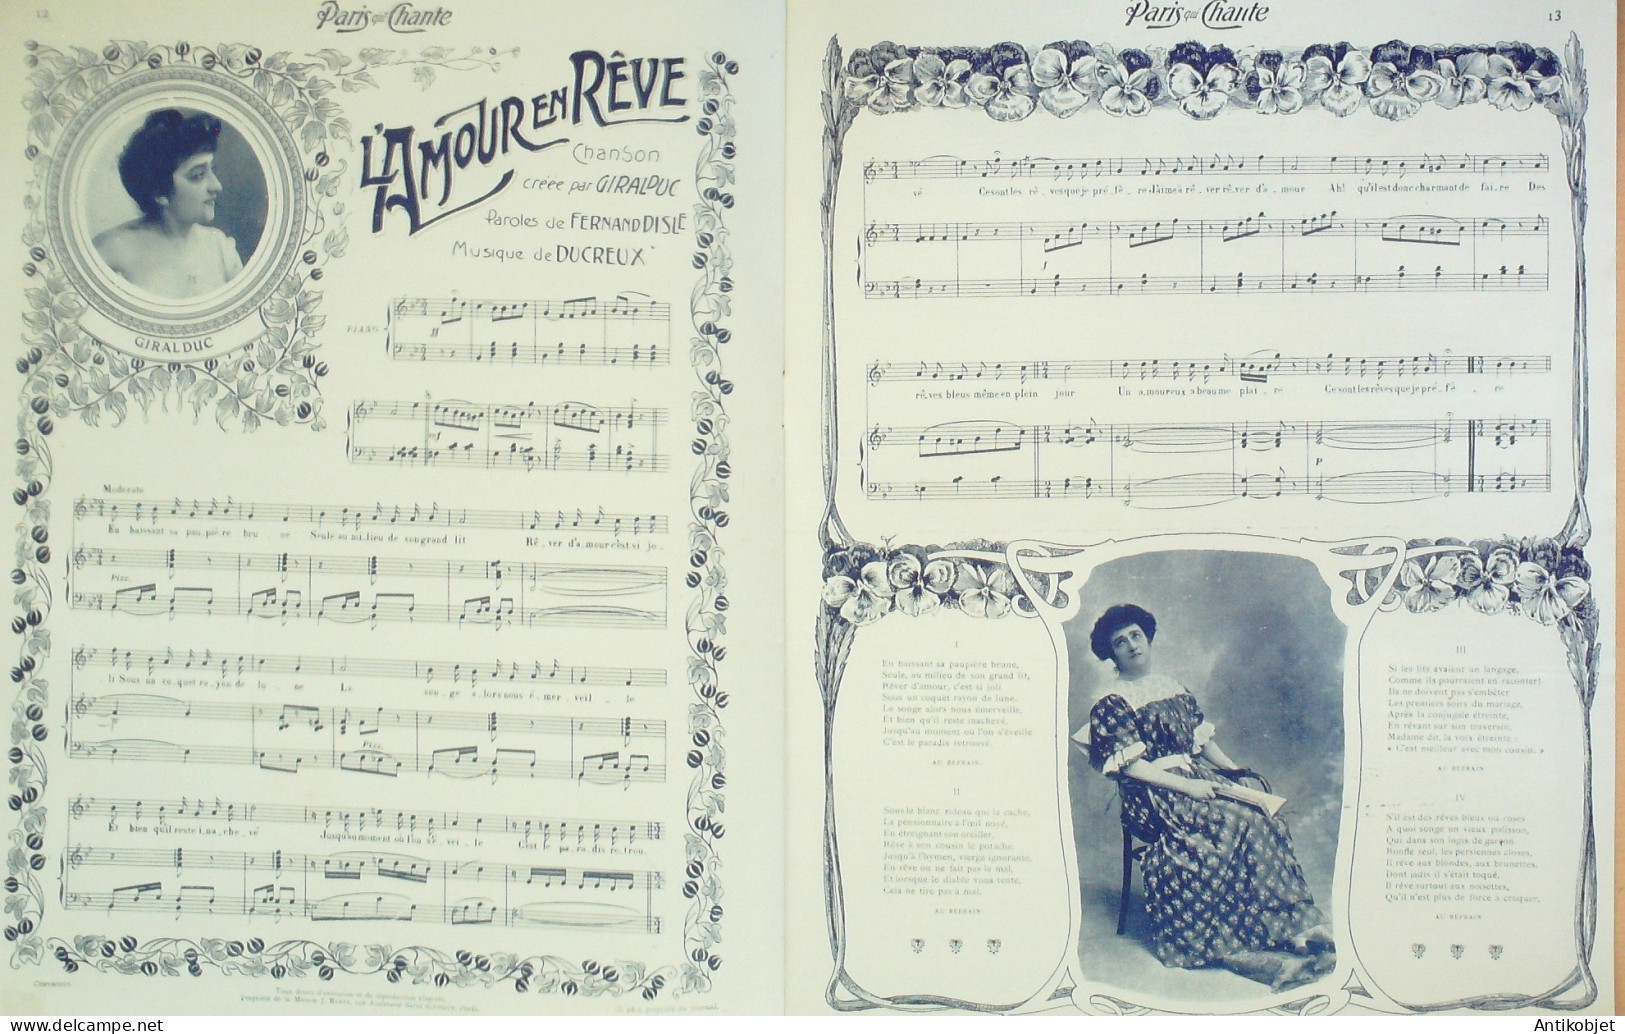 12
Paris qui Chante
L'AMOUR EN RÊVE
Chanson
créée par GIRALDUC
Paroles de FERNAND DISLE
Musique de DUCREUX
GIRALDUC
PIANO
Moderato
En baissant sa pau_piè_re bru _ ne Seule au mi_lieu de son grand lit Rê_ver d'a_mour c'est si jo_
Pizz.
li Sous un co_quet ra_yon de lu _ ne Le son_ge a_lors nous é_mer_veil _ le
Pizz.
Et bien qu'il reste i_na_che_vé Jusqu'au moment où l'on s'é_veil _ le C'est le pa_ra_dis re_trou_
Tous droits d'exécution et de reproduction réservés.
Paris qui Chante
13
vé Ce sont les rê_ves que je pré_fè_re J'aime à rê_ver rê_ver d'a_mour Ah! qu'il est donc charmant de fai_re Des
rê_ves bleus même en plein jour Un a_moureux a beau me plai_re Ce sont les rêves que je pré_fè_re
I
En baissant sa paupière brune,
Seule, au milieu de son grand lit,
Rêver d'amour, c'est si joli
Sous un coquet rayon de lune.
Le songe alors nous émerveille,
Et bien qu'il reste inachevé,
Jusqu'au moment où l'on s'éveille
C'est le paradis retrouvé.
AU REFRAIN.
II
Sous le blanc rideau qui la cache,
La pensionnaire à l'œil noyé,
En étreignant son oreiller,
Rêve à son cousin le potache
Jusqu'à l'hymen, vierge ignorante,
En rêve on ne fait pas le mal,
Et lorsque le diable vous tente,
Cela ne tire pas à mal.
AU REFRAIN
III
Si les lits avaient un langage,
Comme ils pourraient en raconter!
Ils ne doivent pas s'embêter
Les premiers soirs du mariage,
Après la conjugale étreinte,
En rêvant sur son traversin,
Madame dit, la voix éteinte :
« C'est meilleur avec mon cousin. »
AU REFRAIN
IV
S'il est des rêves bleus ou roses
A quoi songe un vieux polisson,
Qui dans son logis de garçon
Ronfle seul, les persiennes closes,
Il rêve aux blondes, aux brunettes,
Dont jadis il s'était toqué,
Il rêve surtout aux noisettes,
Qu'il n'est plus de force à croquer.
AU REFRAIN
Antikobjet